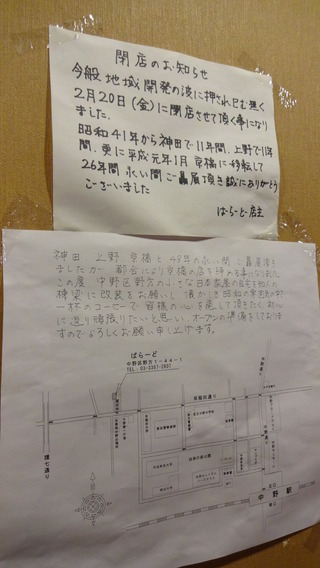 閉店のお知らせ
今般地域開発の波に押され已む無く
2月20日(金)に閉店させて頂く事になり
ました。
昭和41年から神田で11年間、上野で11年
間、更に平成元年1月京橋に移転して
26年間永い間ご贔屓頂き誠にありがとう
ございました
ばらーど 店主
神田 上野 京橋と48年の永い間ご贔屓頂き
ましたが 都合により京橋の店を
この度 中野区野方の小さな日本家屋の自宅を知人の
棟梁に改装をお願いし 懐かしき昭和の
一杯のコーヒーで皆様の心を癒して頂きたく
に送り頑張りたいと思い、オープンの準備をしておりま
すのでよろしくお願い申し上げます。
ばらーど
中野区野方1-44-1
TEL:03-3387-2937
早稲田通り
環七通り
中野通り
北口
中野駅
南口